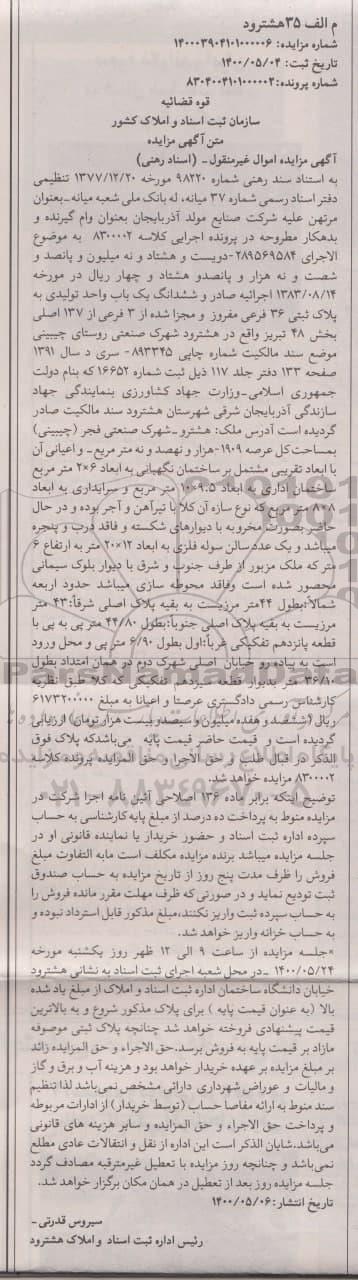 م الف ۳۵هشترود
شماره مزایده: ۱۴۰۰۰۳۹۰۴۱۰۱۰۰۰۰۰۶
تاریخ ثبت: ۱۴۰۰/۰۵/۰۴
شماره پرونده: ۸۳۰۴۰۰۴۱۰۱۰۰۰۰۰۲
قوه قضائیه
سازمان ثبت اسناد و املاک کشور
متن آگهی مزایده
آگهی مزایده اموال غیرمنقول- (اسناد رهنی)
به استناد سند رهنی شماره ۹۸۲۲۰ مورخه ۱۳۷۷/۱۲/۲۰ تنظیمی
دفتر اسناد رسمی شماره ۳۷ میانه، له بانک ملی شعبه میانه-بعنوان
مرتهن علیه شرکت صنایع مولد آذربایجان بعنوان وام گیرنده و
بدهکار مطروحه در پرونده اجرایی کلاسه ۸۳۰۰۰۰۲ به موضوع
الاجرای ۲۸۹۵۶۹۵۸۴-دویست و هشتاد و نه میلیون و پانصد و
شصت و نه هزار و پانصدو هشتاد و چهار ریال در مورخه
۱۳۸۳/۰۸/۱۴ اجرائیه صادر و ششدانگ یک باب واحد تولیدی به
پلاک ثبتی ۳۶ فرعی مفروز و مجزا شده از ۳ فرعی از ۱۳۷ اصلی
بخش ۴۸ تبریز واقع در هشترود شهرک صنعتی روستای چیبینی
موضع سند مالکیت شماره چاپی ۸۹۳۳۴۵- سری د سال ۱۳۹۱
صفحه ۱۳۳ دفتر جلد ۱۱۷ ذیل ثبت شماره ۱۶۶۵۲ که بنام دولت
جمهوری اسلامی-وزارت جهاد کشاورزی بنمایندگی جهاد
سازندگی آذربایجان شرقی شهرستان هشترود سند مالکیت صادر
گردیده است آدرس ملک: هشترو-شهرک صنعتی فجر (چیبینی)
بمساحت کل عرصه ۱۹۰۹-هزار و نهصد و نه متر مربع- و اعیانی آن
با ابعاد تقریبی مشتمل بر ساختمان نگهبانی به ابعاد ۶×۲ متر مربع
ساختمان اداری به ابعاد ۹.۵×۱۰ متر مربع و سرایداری به ابعاد
۸×۸ متر مربع که نوع سازه آن کلا با تیرآهن و آجر بوده و در حال
حاضر بصورت مخروبه با دیوارهای شکسته و فاقد درب و پنجره
میباشد و یک عدد سالن سوله فلزی به ابعاد ۱۲×۲۰ متر به ارتفاع ۶
متر که ملک مزبور از طرف جنوب و شرق با دیوار بلوک سیمانی
محصور شده است وفاقد محوطه سازی میباشد حدود اربعه
شمالاً:بطول ۴۴متر مرزیست به بقیه پلاک اصلی شرقاً:۴۳ متر
مرزیست به بقیه پلاک اصلی جنوباً:بطول ۴۴/۸۰ متر پی به پی با
قطعه پانزدهم تفکیکی غرباً:اول بطول ۶/۹۰ متر پی و محل ورود
است به پیاده رو خیابان اصلی شهرک دوم در همان امتداد بطول
۳۶/۱۰ متر بدیوار قطعه سیزدهم تفکیکی که کلا طبق نظریه
کارشناس رسمی دادگستری عرصتا و اعیانا به مبلغ ۶۱۷۳۲۰۰۰۰۰
ریال (ششصد و هفده میلیون و سیصد و بیست هزار تومان) ارزیابی
گردیده است و قیمت حاضر قیمت پایه می‌باشدکه پلاک فوق
الذکر در قبال طلب و حق الاجرا و حق المزایده پرونده کلاسه
۸۳۰۰۰۰۲ مزایده خواهد شد.
توضیح اینکه برابر ماده ۱۳۶ اصلاحی آئین نامه اجرا شرکت در
مزایده منوط به پرداخت ده درصد از مبلغ پایه کارشناسی به حساب
سپرده اداره ثبت اسناد و حضور خریدار یا نماینده قانونی او در
جلسه مزایده میباشد برنده مزایده مکلف است مابه التفاوت مبلغ
فروش را ظرف مدت پنج روز از تاریخ مزایده به حساب صندوق
ثبت تودیع نماید و در صورتی که ظرف مهلت مقرر مانده فروش را
به حساب سپرده ثبت واریز نکنند،مبلغ مذکور قابل استرداد نبوده و
به حساب خزانه واریز خواهد شد.
»جلسه مزایده از ساعت ۹ الی ۱۲ ظهر روز یکشنبه مورخه
۱۴۰۰/۰۵/۲۴ -در محل شعبه اجرای ثبت اسناد به نشانی هشترود
خیابان دانشگاه ساختمان اداره ثبت اسناد و املاک از مبلغ یاد شده
بالا (به عنوان قیمت پایه ) برای پلاک مذکور شروع و به بالاترین
قیمت پیشنهادی فروخته خواهد شد چنانچه پلاک ثبتی موصوفه
مازاد بر قیمت پایه به فروش برسد.حق الاجراء و حق المزایده زائد
بر مبلغ مزایده بر عهده خریدار خواهد بود و هزینه آب و برق و گاز
و مالیات و عوراض شهرداری دارائی مشخص نمی‌باشد لذا تنظیم
سند منوط به ارائه مفاصا حساب (توسط خریدار) از ادارات مربوطه
و پرداخت حق الاجراء و حق المزایده و سایر هزینه های قانونی
می‌باشد.شایان الذکر است این اداره از نقل و انتقالات عادی مطلع
نمی‌باشد و چنانچه روز مزایده با تعطیل غیرمترقبه مصادف گردد
جلسه مزایده روز بعد از تعطیل در همان مکان برگزار خواهد شد.
تاریخ انتشار: ۱۴۰۰/۰۵/۰۶
سیروس قدرتی-
رئیس اداره ثبت اسناد و املاک هشترود
۰۲۱-۸۸۳۴۹۶۷۰-۵